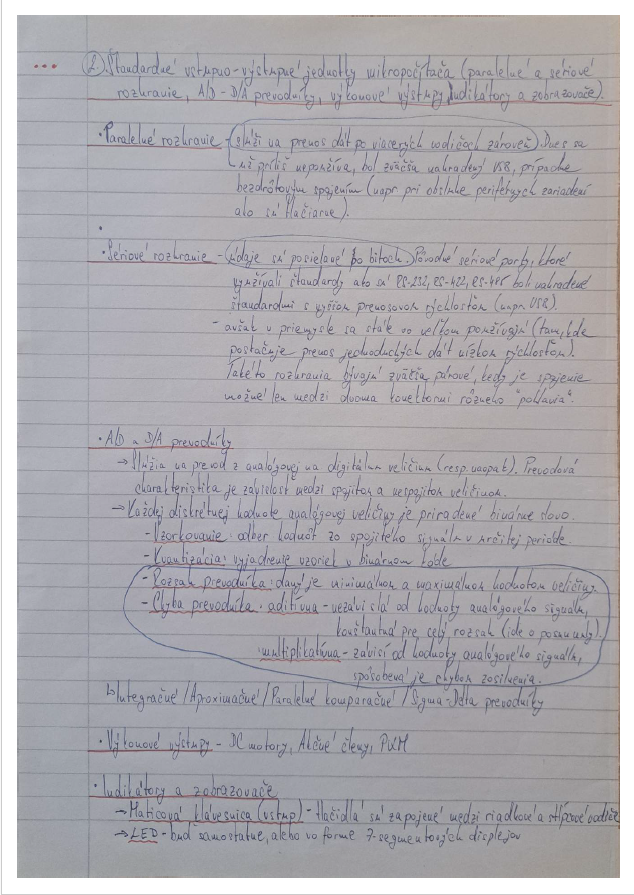 2. Štandardné vstupno-výstupné jednotky mikropočítača (paralelné a sériové
rozhranie, A/D - D/A prevodníky, výkonové výstupy, indikátory a zobrazovače).
• Paralelné rozhranie - slúži na prenos dát po viacerých vodičoch zároveň. Dnes sa
už príliš nepoužíva, bol zväčša nahradený USB, prípadne
bezdrôtovým spojením (napr pri obsluhe periférnych zariadení
ako sú tlačiarne).
•
• Sériové rozhranie - údaje sú posielané po bitoch. Pôvodné sériové porty, ktoré
využívali štandardy ako sú RS-232, RS-422, RS-485 boli nahradené
štandardmi s vyššou prenosovou rýchlosťou (napr. USB).
- avšak v priemysle sa stále vo veľkom používajú (tam, kde
postačuje prenos jednoduchých dát nízkou rýchlosťou).
Takéto rozhrania bývajú zväčša párové, kedy je spojenie
možné len medzi dvoma konektormi rôzneho "pohlavia".
• A/D a D/A prevodníky
→ Slúžia na prevod z analógovej na digitálnu veličinu (resp. naopak). Prevodová
charakteristika je závislosť medzi spojitou a nespojitou veličinou.
→ Každej diskrétnej hodnote analógovej veličiny je priradené binárne slovo.
- Vzorkovanie: odber hodnôt zo spojitého signálu v určitej perióde.
- Kvantizácia: vyjadrenie vzoriek v binárnom kóde
- Rozsah prevodníka: daný je minimálnou a maximálnou hodnotou veličiny.
- Chyba prevodníka: aditívna - nezávislá od hodnoty analógového signálu,
konštantná pre celý rozsah (ide o posun nuly).
multiplikatívna - závisí od hodnoty analógového signálu,
spôsobená je chybou zosilnenia.
↳ Integračné / Aproximačné / Paralelné komparačné / Sigma-Delta prevodníky
• Výkonové výstupy - DC motory, Akčné členy, PWM
• Indikátory a zobrazovače
→ Maticová klávesnica (vstup) - tlačidlá sú zapojené medzi riadkové a stĺpcové vodiče
→ LED - buď samostatne, alebo vo forme 7-segmentových displejov